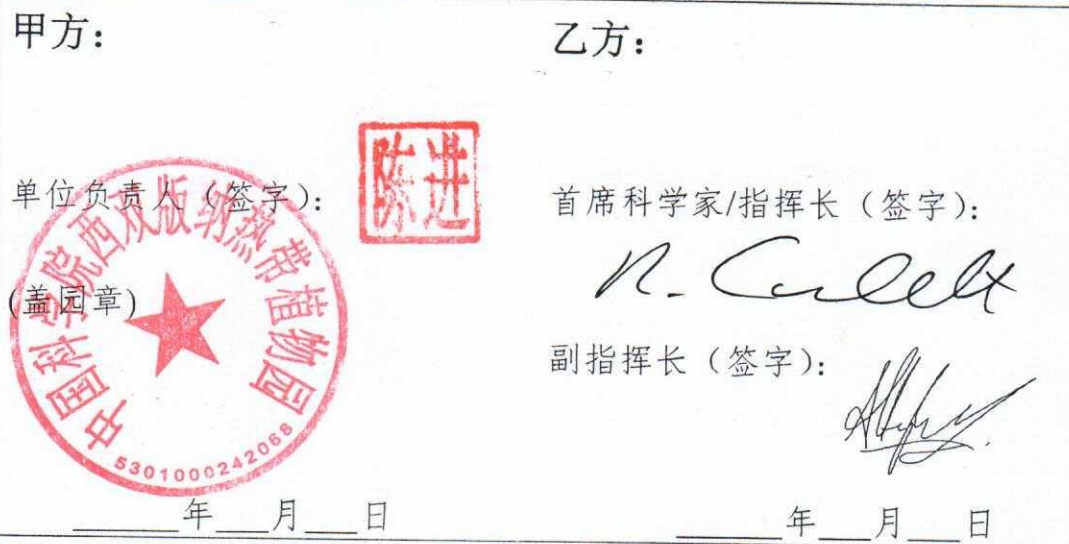 甲方：
单位负责人（签字）：
陈进
(盖园章)
中国科学院西双版纳热带植物园
5301000242068
____年__月__日
乙方：
首席科学家/指挥长（签字）：
副指挥长（签字）：
____年__月__日